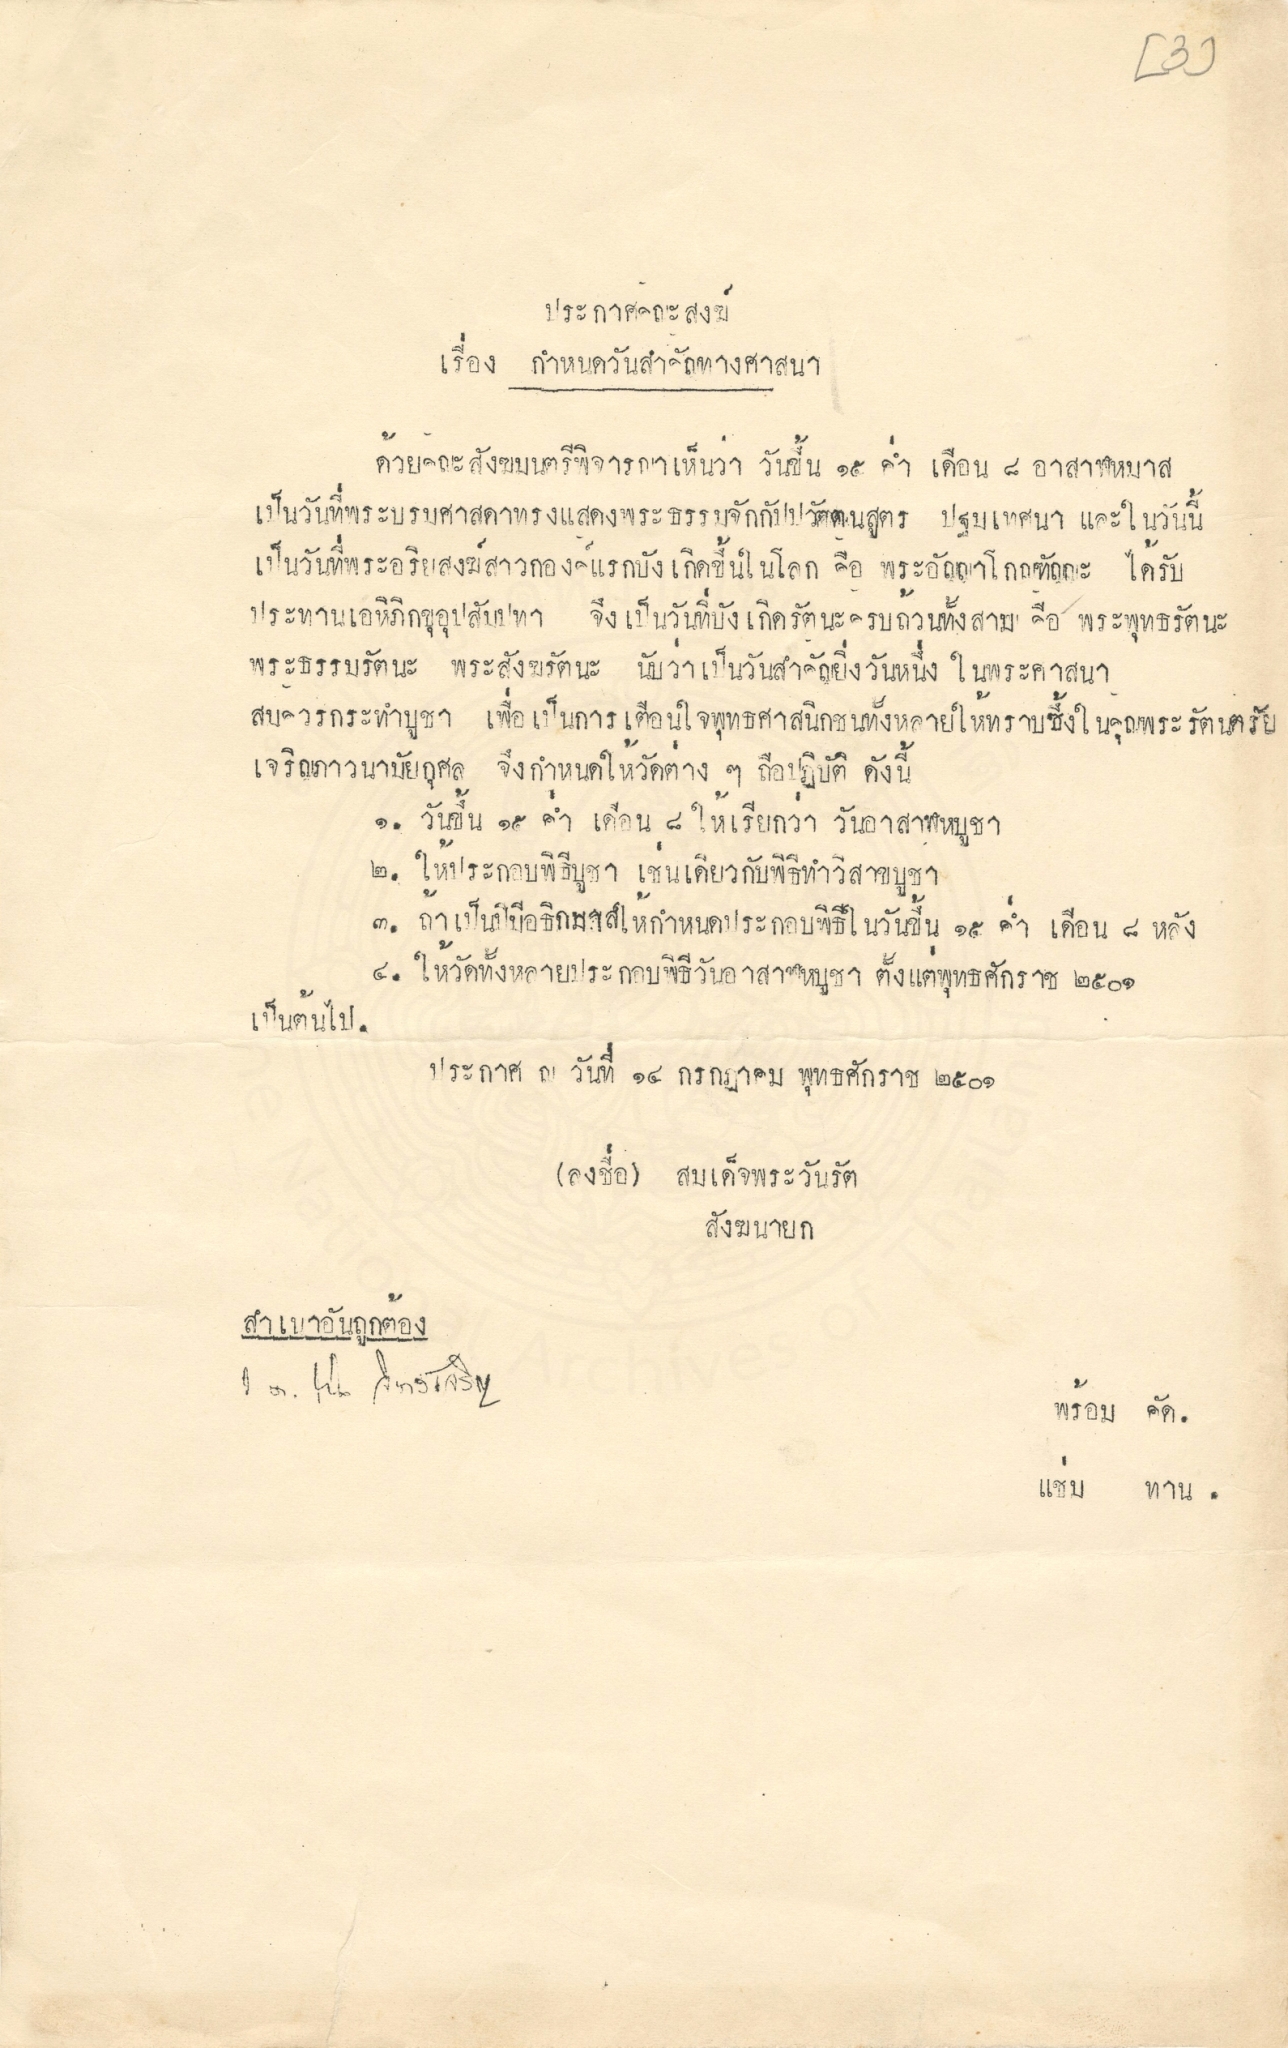 [3]
ประกาศคณะสงฆ์
เรื่อง กำหนดวันสำคัญทางศาสนา
ด้วยคณะสังฆมนตรีพิจารณาเห็นว่า วันขึ้น ๑๕ ค่ำ เดือน ๘ อาสาฬหมาส
เป็นวันที่พระบรมศาสดาทรงแสดงพระธรรมจักกัปปวัตตนสูตร ปฐมเทศนา และในวันนี้
เป็นวันที่พระอริยสงฆ์สาวกองค์แรกบังเกิดขึ้นในโลก คือ พระอัญญาโกณฑัญญะ ได้รับ
ประทานเอหิภิกขุอุปสัมปทา จึงเป็นวันที่บังเกิดรัตนะครบถ้วนทั้งสาม คือ พระพุทธรัตนะ
พระธรรมรัตนะ พระสังฆรัตนะ นับว่าเป็นวันสำคัญยิ่งวันหนึ่ง ในพระศาสนา
สมควรกระทำบูชา เพื่อเป็นการเตือนใจพุทธศาสนิกชนทั้งหลายให้ทราบซึ้งในคุณพระรัตนตรัย
เจริญภาวนามัยกุศล จึงกำหนดให้วัดต่าง ๆ ถือปฏิบัติ ดังนี้
๑. วันขึ้น ๑๕ ค่ำ เดือน ๘ ให้เรียกว่า วันอาสาฬหบูชา
๒. ให้ประกอบพิธีบูชา เช่นเดียวกับพิธีทำวิสาขบูชา
๓. ถ้าเป็นปีมีอธิกมาสให้กำหนดประกอบพิธีในวันขึ้น ๑๕ ค่ำ เดือน ๘ หลัง
๔. ให้วัดทั้งหลายประกอบพิธีวันอาสาฬหบูชา ตั้งแต่พุทธศักราช ๒๕๐๑
เป็นต้นไป.
ประกาศ ณ วันที่ ๑๔ กรกฎาคม พุทธศักราช ๒๕๐๑
(ลงชื่อ) สมเด็จพระวันรัต
สังฆนายก
สำเนาอันถูกต้อง
พร้อม คัด.
แช่ม ทาน.